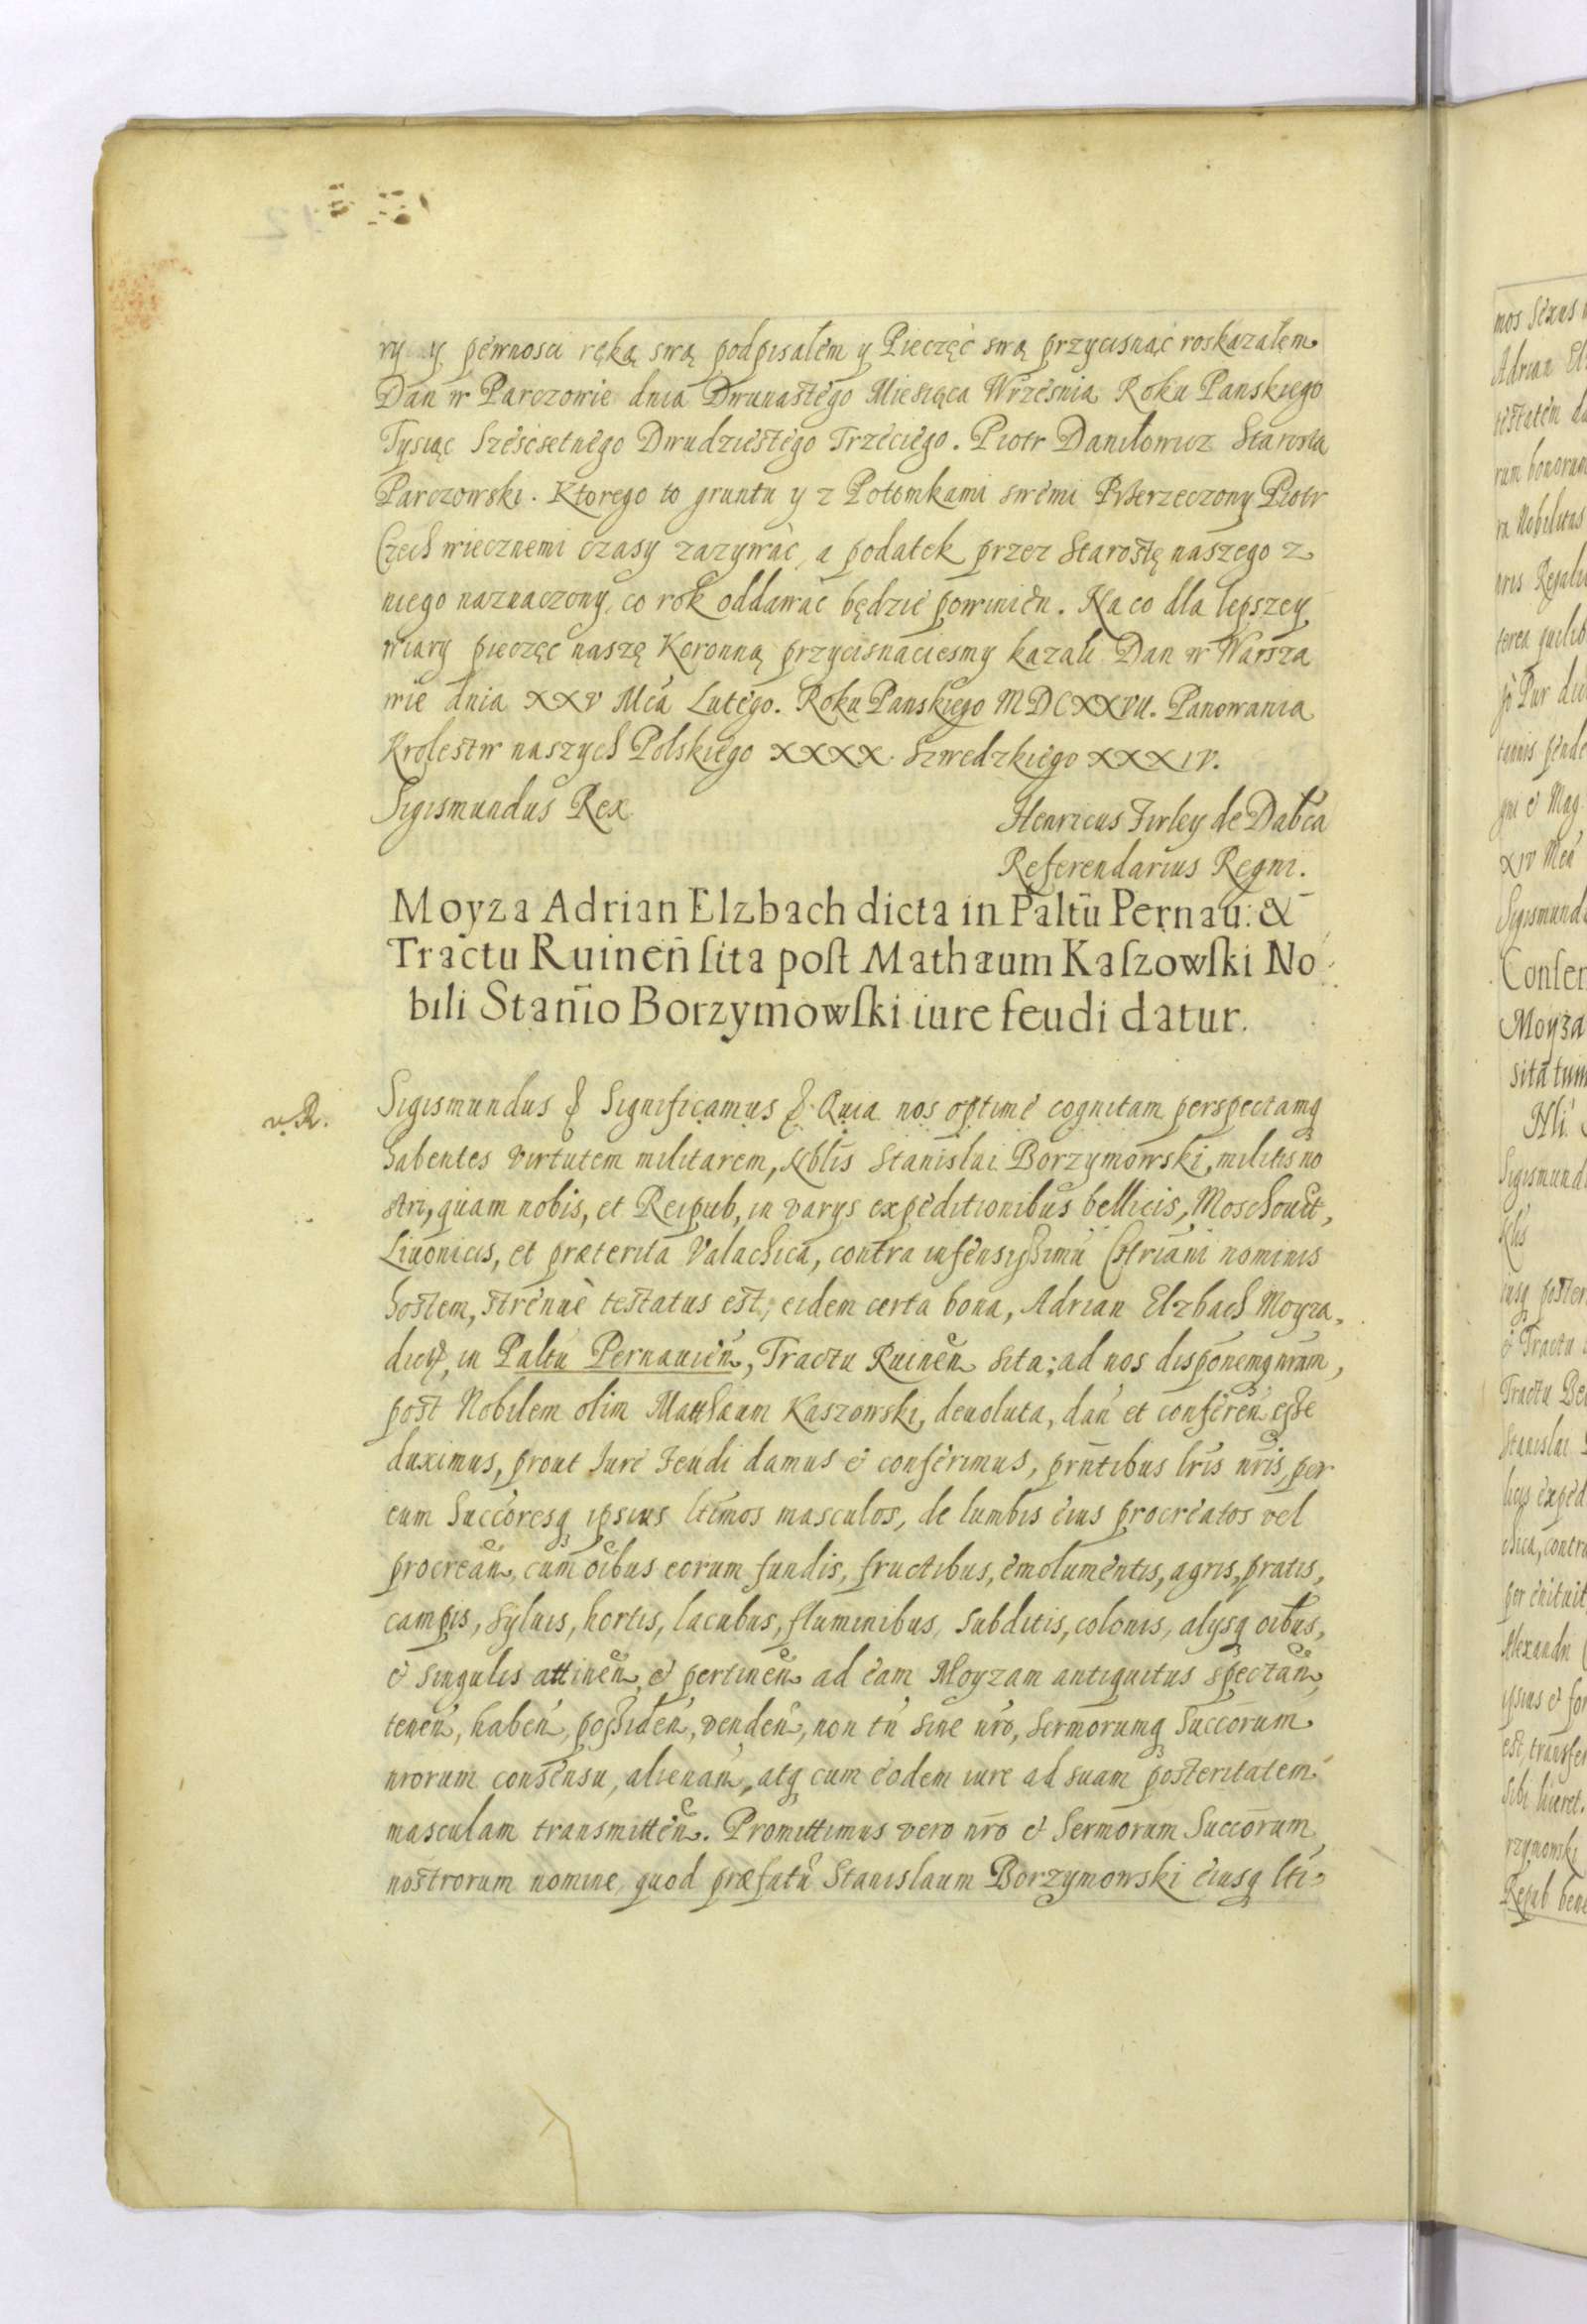 ry y pewnosci ręką swą podpisałem y Pieczęć swą przycisnąć roskazałem
Dan w Parczowie dnia Dwunastego Miesiąca Wrzesnia Roku Panskiego
Tysiąc Sześćsetnego Dwudziestego Trzeciego. Piotr Daniłowicz Starosta
Parczowski. Ktorego to gruntu y z Potomkami swemi Przerzeczony Piotr
Czech wiecznemi czasy zazywać, a podatek przez Starostę naszego z
niego naznaczony, co rok oddawać będzie powinien. Na co dla lepszey
wiary pieczęć naszę Koronną przycisnąciesmy kazali Dan w Warsza
wie dnia XXV Mca Lutego. Roku Panskiego MDCXXVII. Panowania
Krolestw naszych Polskiego XXXX. Szwedzkiego XXXIV.
Sigismundus Rex.
Henricus Firley de Dabca
Referendarius Regni.
Moyza Adrian Elzbach dicta in Paltu Pernau: &
Tractu Ruineñ sita post Mathæum Kaszowski No
bili Stanio Borzymowski iure feudi datur.
Sigismundus & Significamus & Quia nos optime cognitam perspectamq
habentes virtutem militarem, Nblis Stanislai Borzymowski, militis no
stri, quam nobis, et Reipub, in varys expeditionibus bellicis, Moschouit,
Liuonicis, et præterita Valachica, contra infensissimu Chriani nominis
hostem, strenuè testatus est, eidem certa bona, Adrian Elzbach Moyza,
dict, in Paltu Pernauień, Tractu Ruineń sita; ad nos disponemq nram,
post Nobilem olim Matthæum Kaszowski, deuoluta, dań et confereń esse
duximus, prout Iure Feudi damus et conferimus, prntibus lris nris, per
eum Succoresq ipsius ltimos masculos, de lumbis eius procreatos vel
procreań, cum oibus eorum fundis, fructibus, emolumentis, agris, pratis,
campis, syluis, hortis, lacubus, fluminibus, subditis, colonis, alysq oibus,
et singulis attineń, et pertineń ad eam Moyzam antiquitus spectań,
teneń, habeń, possideń, vendeń, non tń sine nro, sermorumq Succorum
nrorum consensu, alienań, atq cum eodem iure ad suam posteritatem
masculam transmitteń. Promittimus vero nro et Sermorum Succorum
nostrorum nomine, quod præfatu Stanislaum Borzymowski eiusq lti